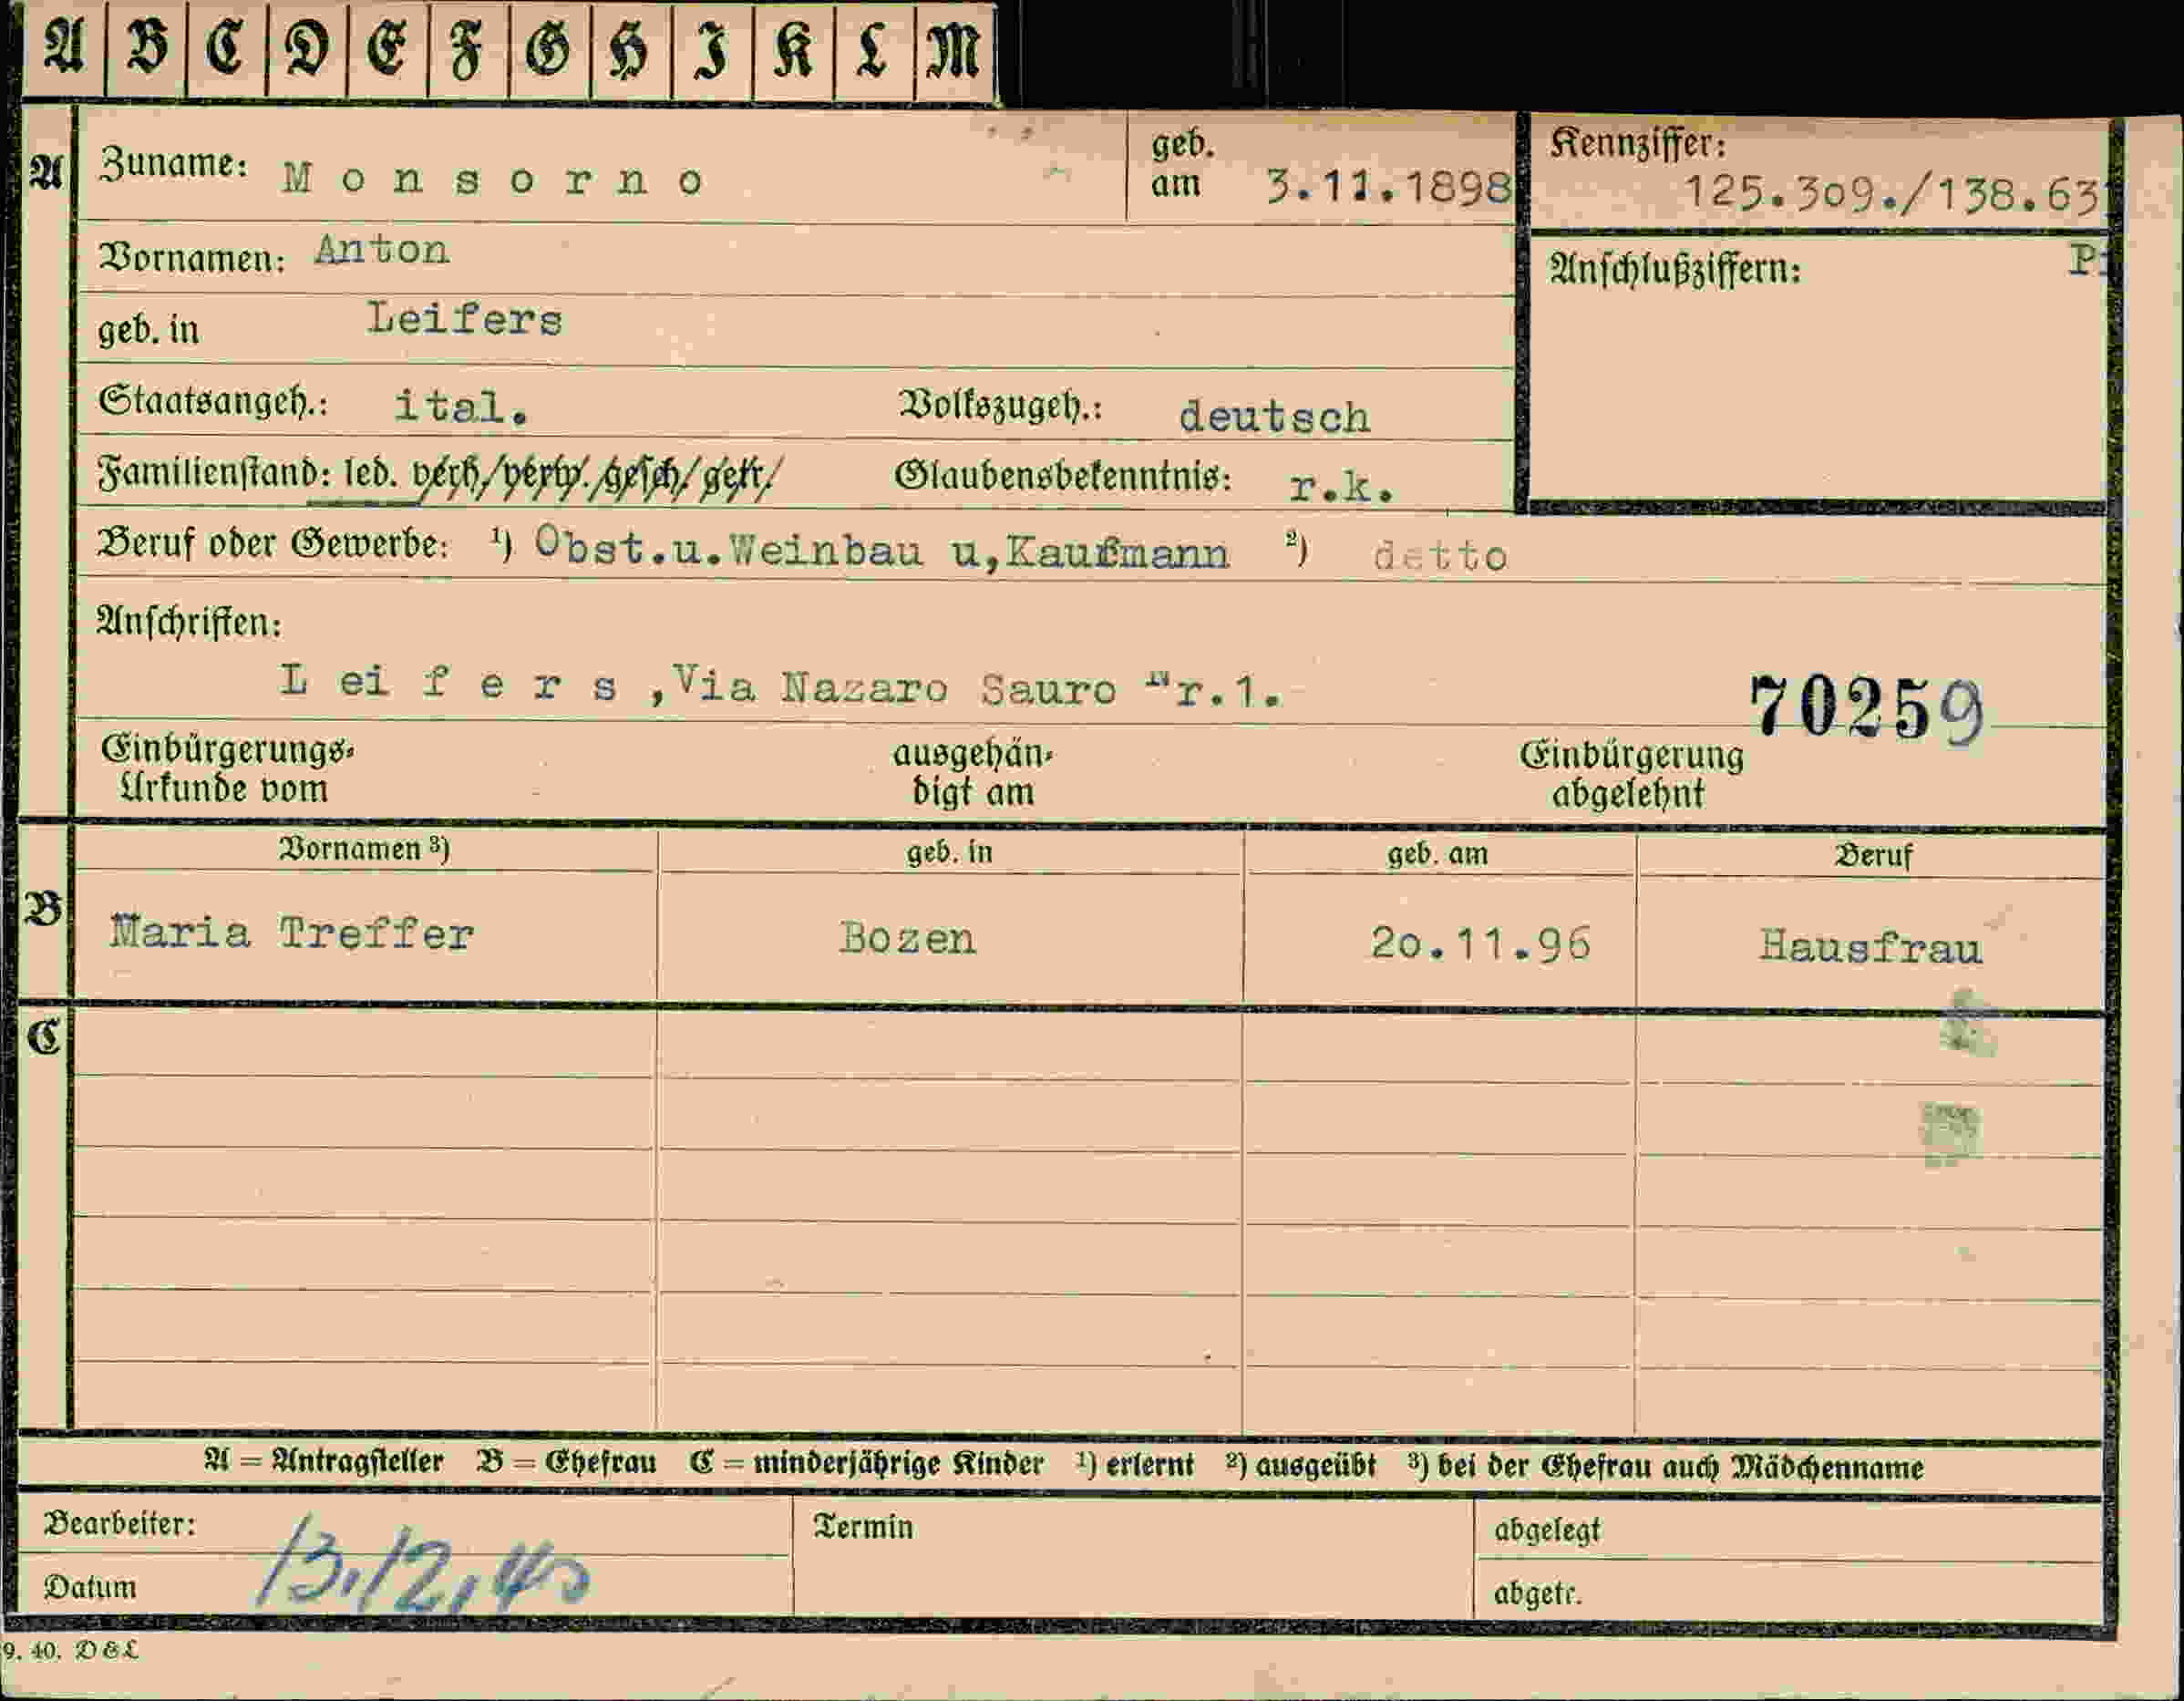 A B C D E F G H I K L M
A Zuname: Monsorno geb. am 3.11.1898 Kennziffer: 125.309./138.631
Vornamen: Anton Anschlußziffern:
geb. in Leifers
Staatsangeh.: ital. Volkszugeh.: deutsch
Familienstand: led. verh/verw./gesch/getr/ Glaubensbekenntnis: r.k.
Beruf oder Gewerbe: ¹) Obst.u.Weinbau u,Kaufmann ²) detto
Anschriften:
Leifers,Via Nazaro Sauro Nr.1. 70259
Einbürgerungs- ausgehän- Einbürgerung
Urkunde vom digt am abgelehnt
Vornamen ³) geb. in geb. am Beruf
B Maria Treffer Bozen 20.11.96 Hausfrau
C
A = Antragsteller B = Ehefrau C = minderjährige Kinder ¹) erlernt ²) ausgeübt ³) bei der Ehefrau auch Mädchenname
Bearbeiter: Termin abgelegt
Datum 13.12.40 abgetr.
9. 40. D&L